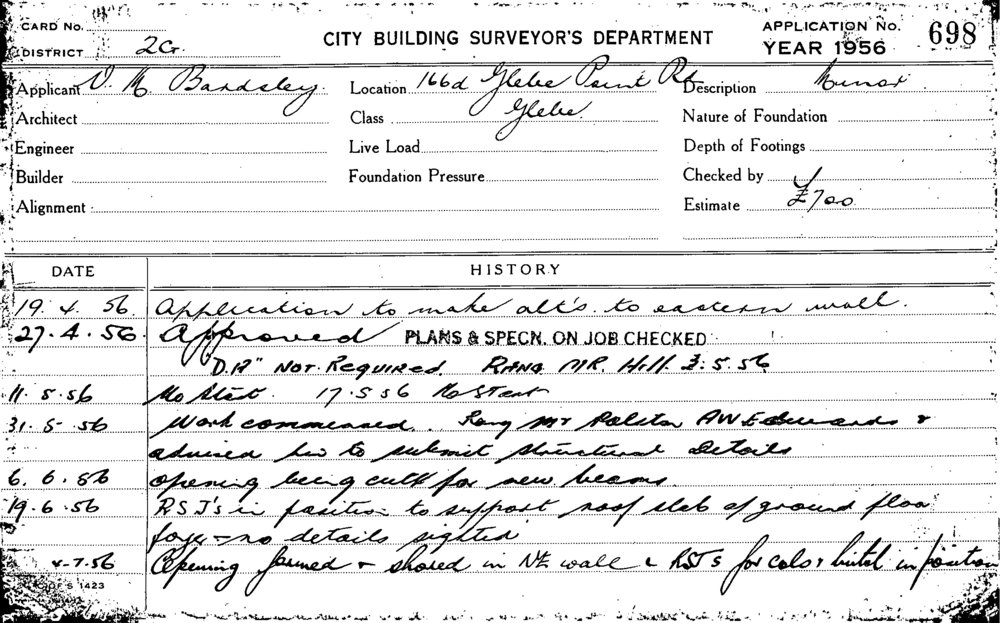 CARD No.
DISTRICT 2G.
CITY BUILDING SURVEYOR'S DEPARTMENT
APPLICATION No. 698
YEAR 1956
Applicant V. M. Bardsley. Location 166d Glebe Point Rd Description Minor
Architect Class Glebe Nature of Foundation
Engineer Live Load Depth of Footings
Builder Foundation Pressure Checked by
Alignment Estimate £700
DATE HISTORY
19. 4. 56 Application to make alt's. to eastern wall.
27. 4. 56 Approved PLANS & SPECN. ON JOB CHECKED
"D.A" NOT REQUIRED. RANG MR. Hill. 3. 5. 56
11. 5. 56 No Start. 17. 5 56 No Start
31. 5. 56 Work commenced. Rang Mr Ralston AW Edwards &
advised him to submit structural details
6. 6. 56 opening being cutt for new beams.
19. 6. 56 RSJ's in position to support roof slab of ground floo
no details sighted
4-7.56 Opening formed & shored in NE wall & RSJ's for cols & lintel in position
1423